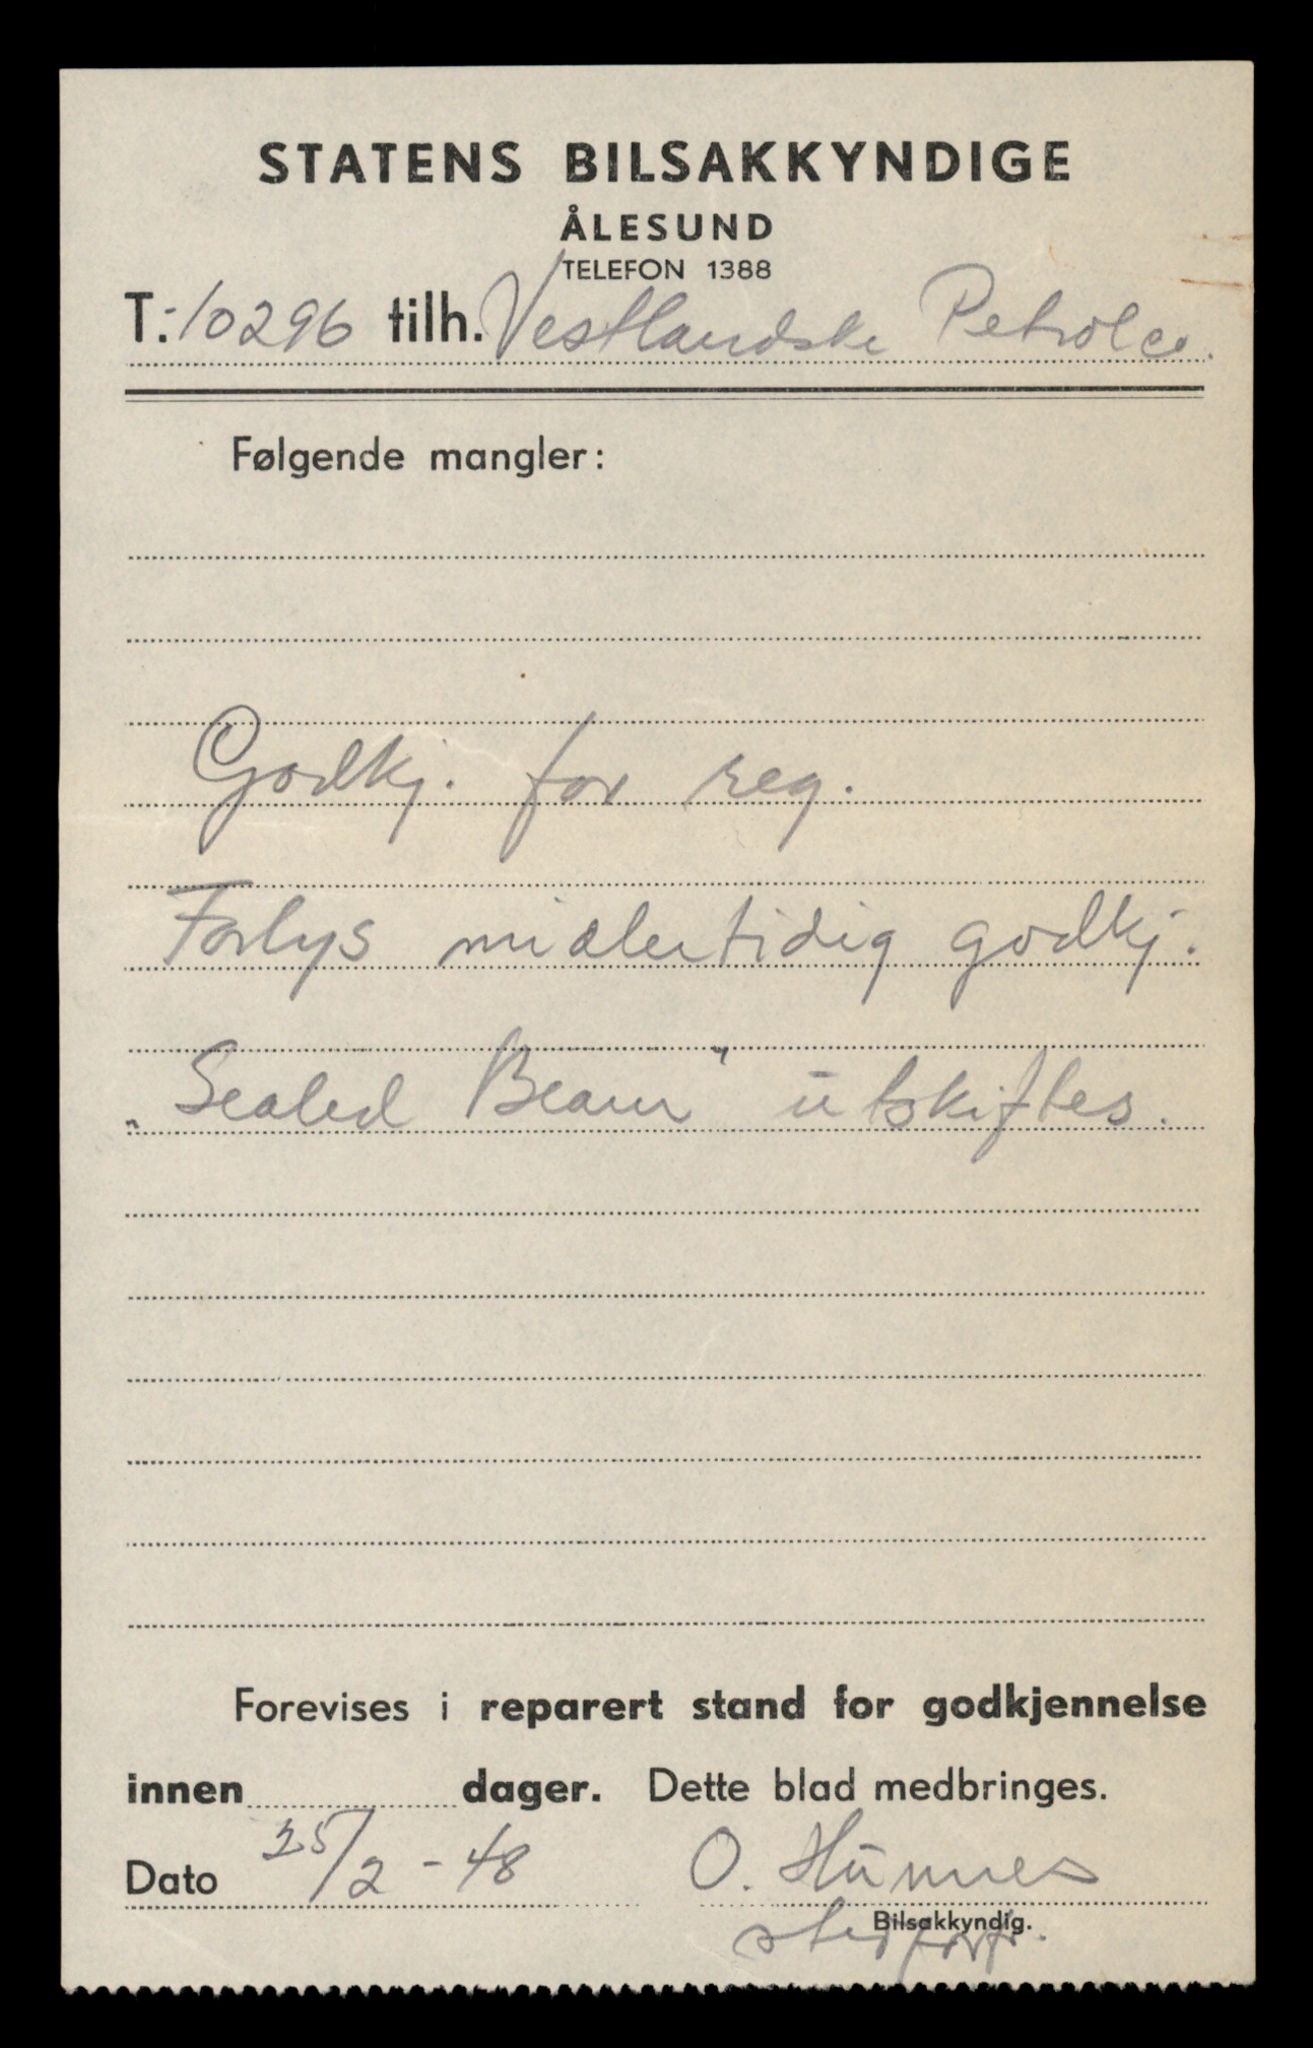 STATENS BILSAKKYNDIGE
ÅLESUND
TELEFON 1388
T.-10296 tilh. Vestlandske Petrolco.
Følgende mangler:
Godkj. for reg.
Forlys midlertidig godkj.
„Sealed Beam" utskiftes.
Forevises i reparert stand for godkjennelse
innen dager. Dette blad medbringes.
Dato 25/2-48 O. Hunnes
Bilsakkyndig.